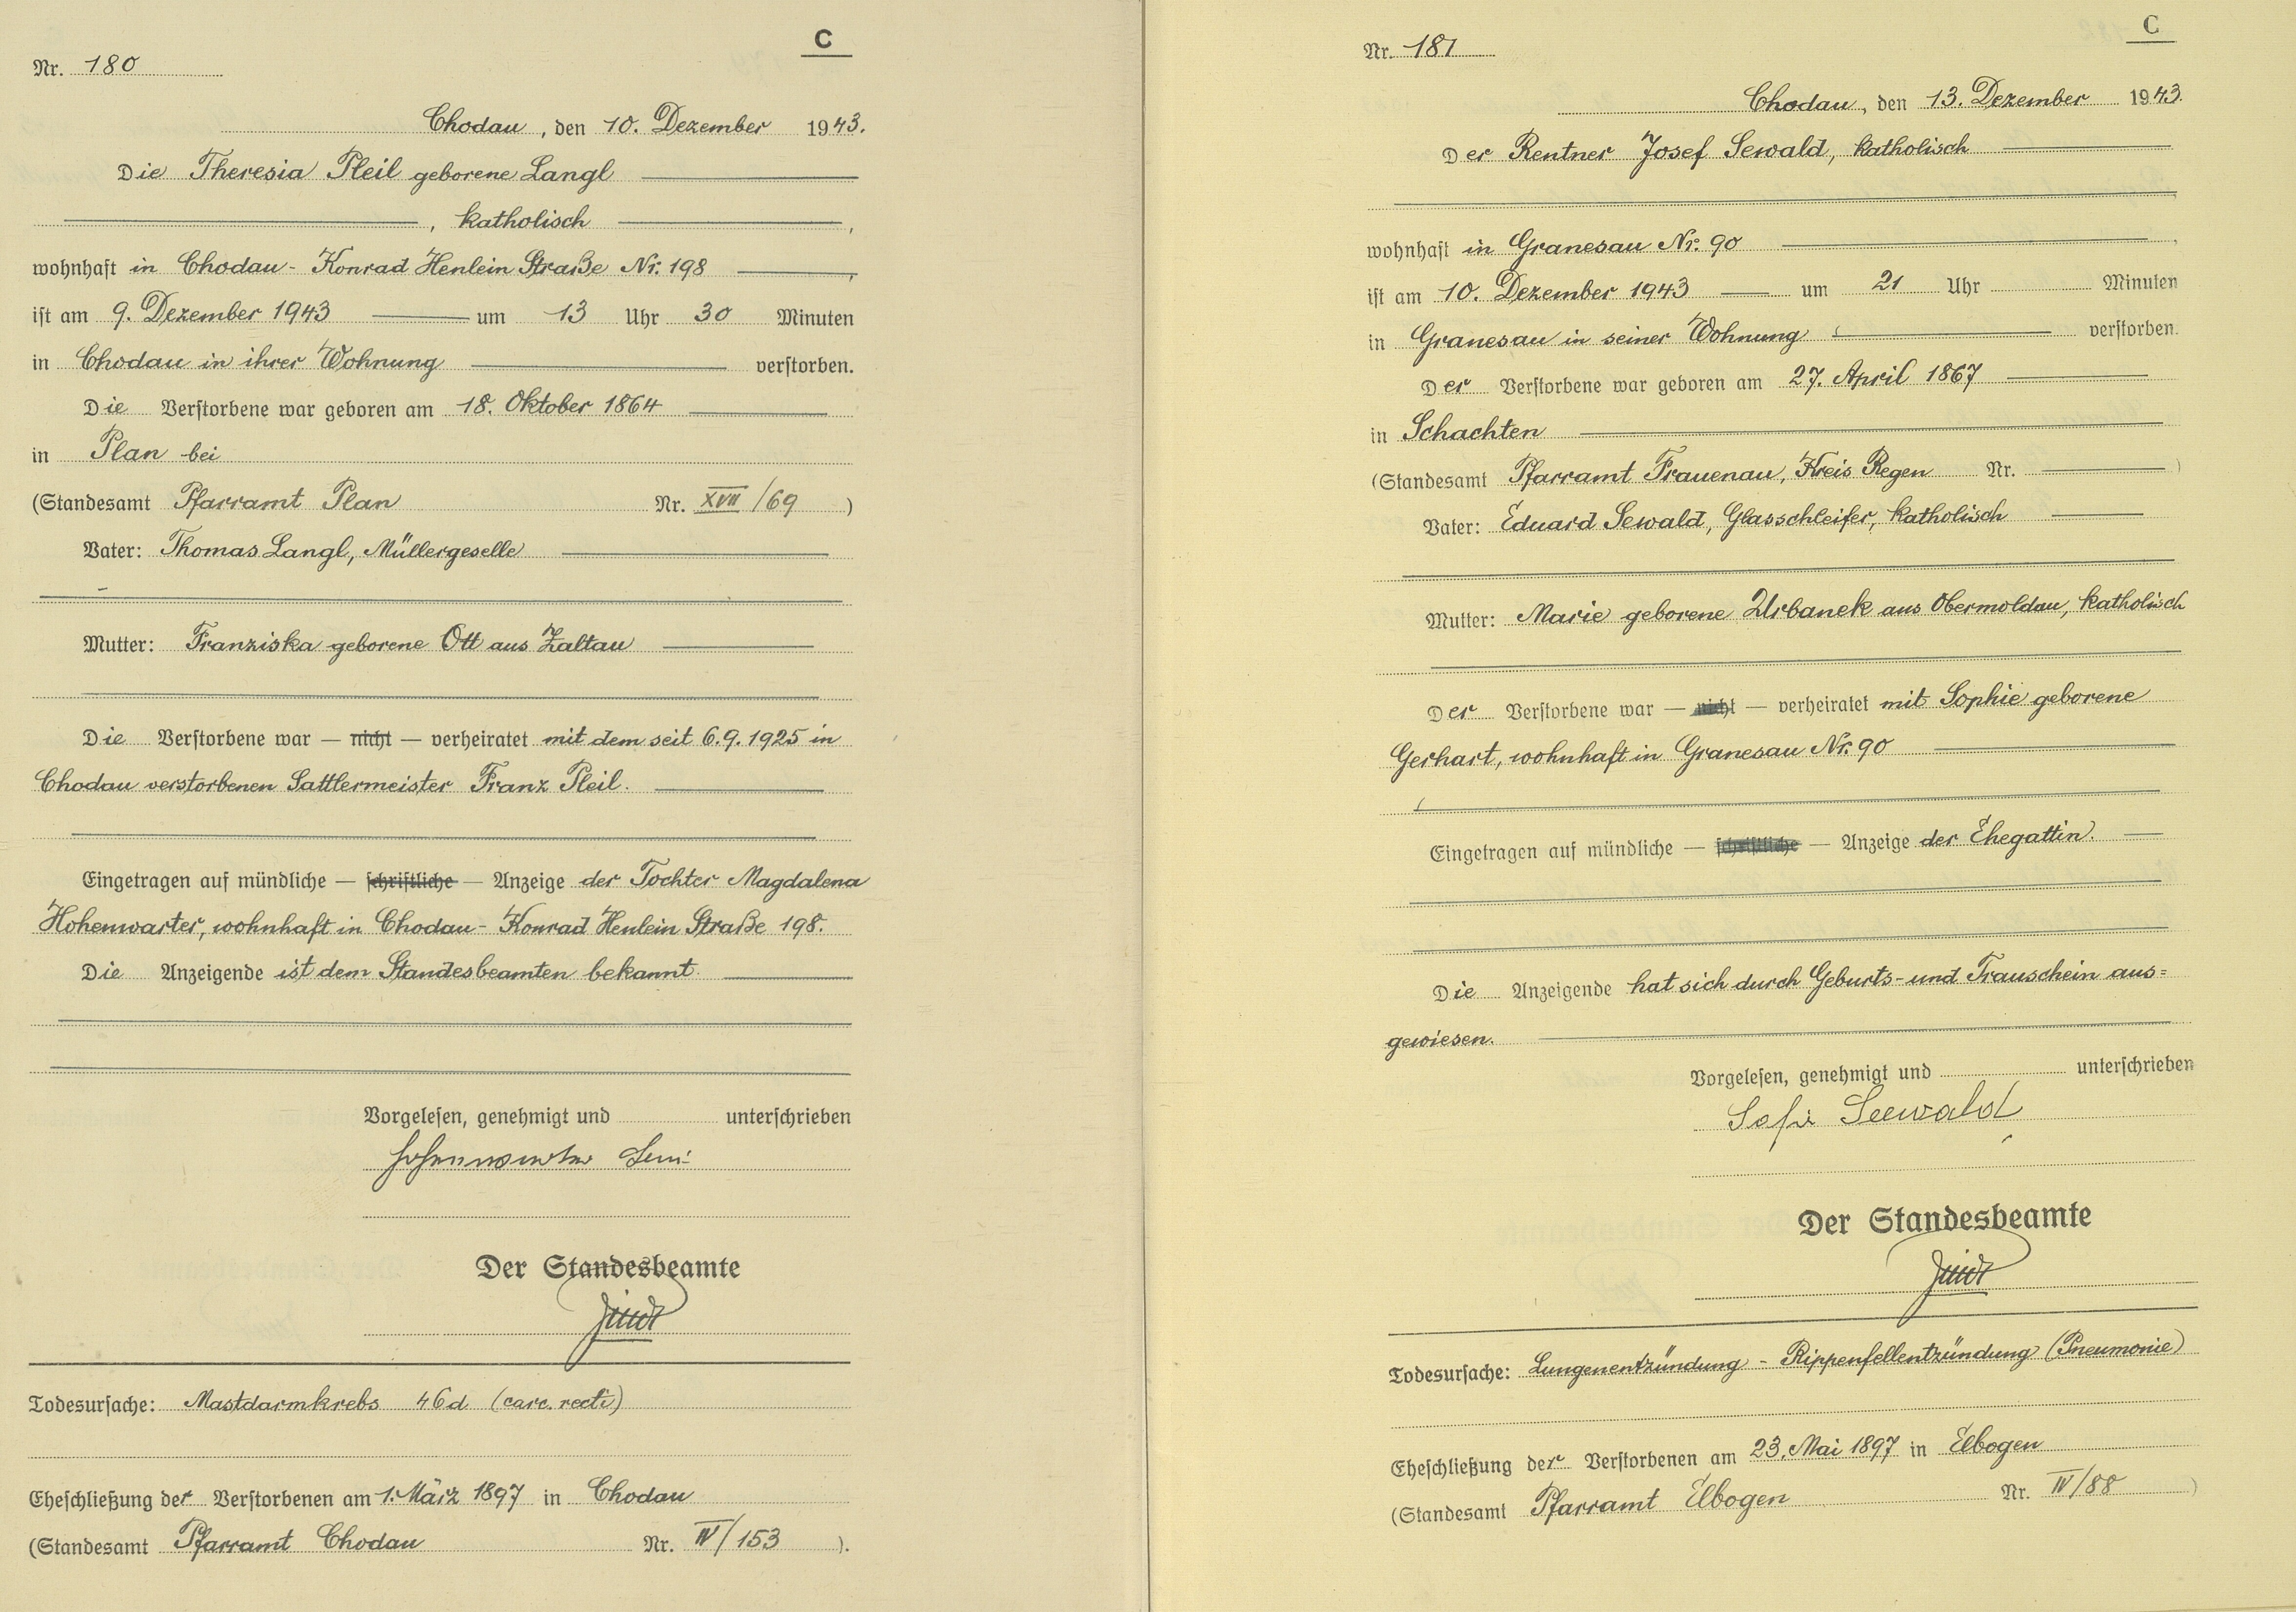 C
Nr. 180
Chodau, den 10. Dezember 1943.
Die Theresia Pleil geborene Langl
, katholisch ,
wohnhaft in Chodau - Konrad Henlein Straße Nr. 198 ,
ist am 9. Dezember 1943 um 13 Uhr 30 Minuten
in Chodau in ihrer Wohnung verstorben.
Die Verstorbene war geboren am 18. Oktober 1864
in Plan bei
(Standesamt Pfarramt Plan Nr. XVII/69 )
Vater: Thomas Langl, Müllergeselle
Mutter: Franziska geborene Ott aus Zaltau
Die Verstorbene war — nicht — verheiratet mit dem seit 6.9.1925 in
Chodau verstorbenen Sattlermeister Franz Pleil.
Eingetragen auf mündliche — schriftliche — Anzeige der Tochter Magdalena
Hohenwarter, wohnhaft in Chodau - Konrad Henlein Straße 198.
Die Anzeigende ist dem Standesbeamten bekannt
Vorgelesen, genehmigt und unterschrieben
Der Standesbeamte
Todesursache: Mastdarmkrebs 46d (carc. recti)
Eheschließung der Verstorbenen am 1. März 1897 in Chodau
(Standesamt Pfarramt Chodau Nr. IV/153 ).
C
Nr. 181
Chodau, den 13. Dezember 1943.
Der Rentner Josef Sewald, katholisch
wohnhaft in Granesau Nr. 90 ,
ist am 10. Dezember 1943 um 21 Uhr Minuten
in Granesau in seiner Wohnung verstorben.
Der Verstorbene war geboren am 27. April 1867
in Schachten
(Standesamt Pfarramt Frauenau, Kreis Regen Nr. )
Vater: Eduard Sewald, Glasschleifer, katholisch
Mutter: Marie geborene Urbanek aus Obermoldau, katholisch
Der Verstorbene war — nicht — verheiratet mit Sophie geborene
Gerhart, wohnhaft in Granesau Nr. 90
Eingetragen auf mündliche — schriftliche — Anzeige der Ehegattin.
Die Anzeigende hat sich durch Geburts- und Trauschein aus=
gewiesen.
Vorgelesen, genehmigt und unterschrieben
Sofie Seewald
Der Standesbeamte
Todesursache: Lungenentzündung - Rippenfellentzündung (Pneumonie)
Eheschließung der Verstorbenen am 23. Mai 1897 in Elbogen
(Standesamt Pfarramt Elbogen Nr. IV/88 )